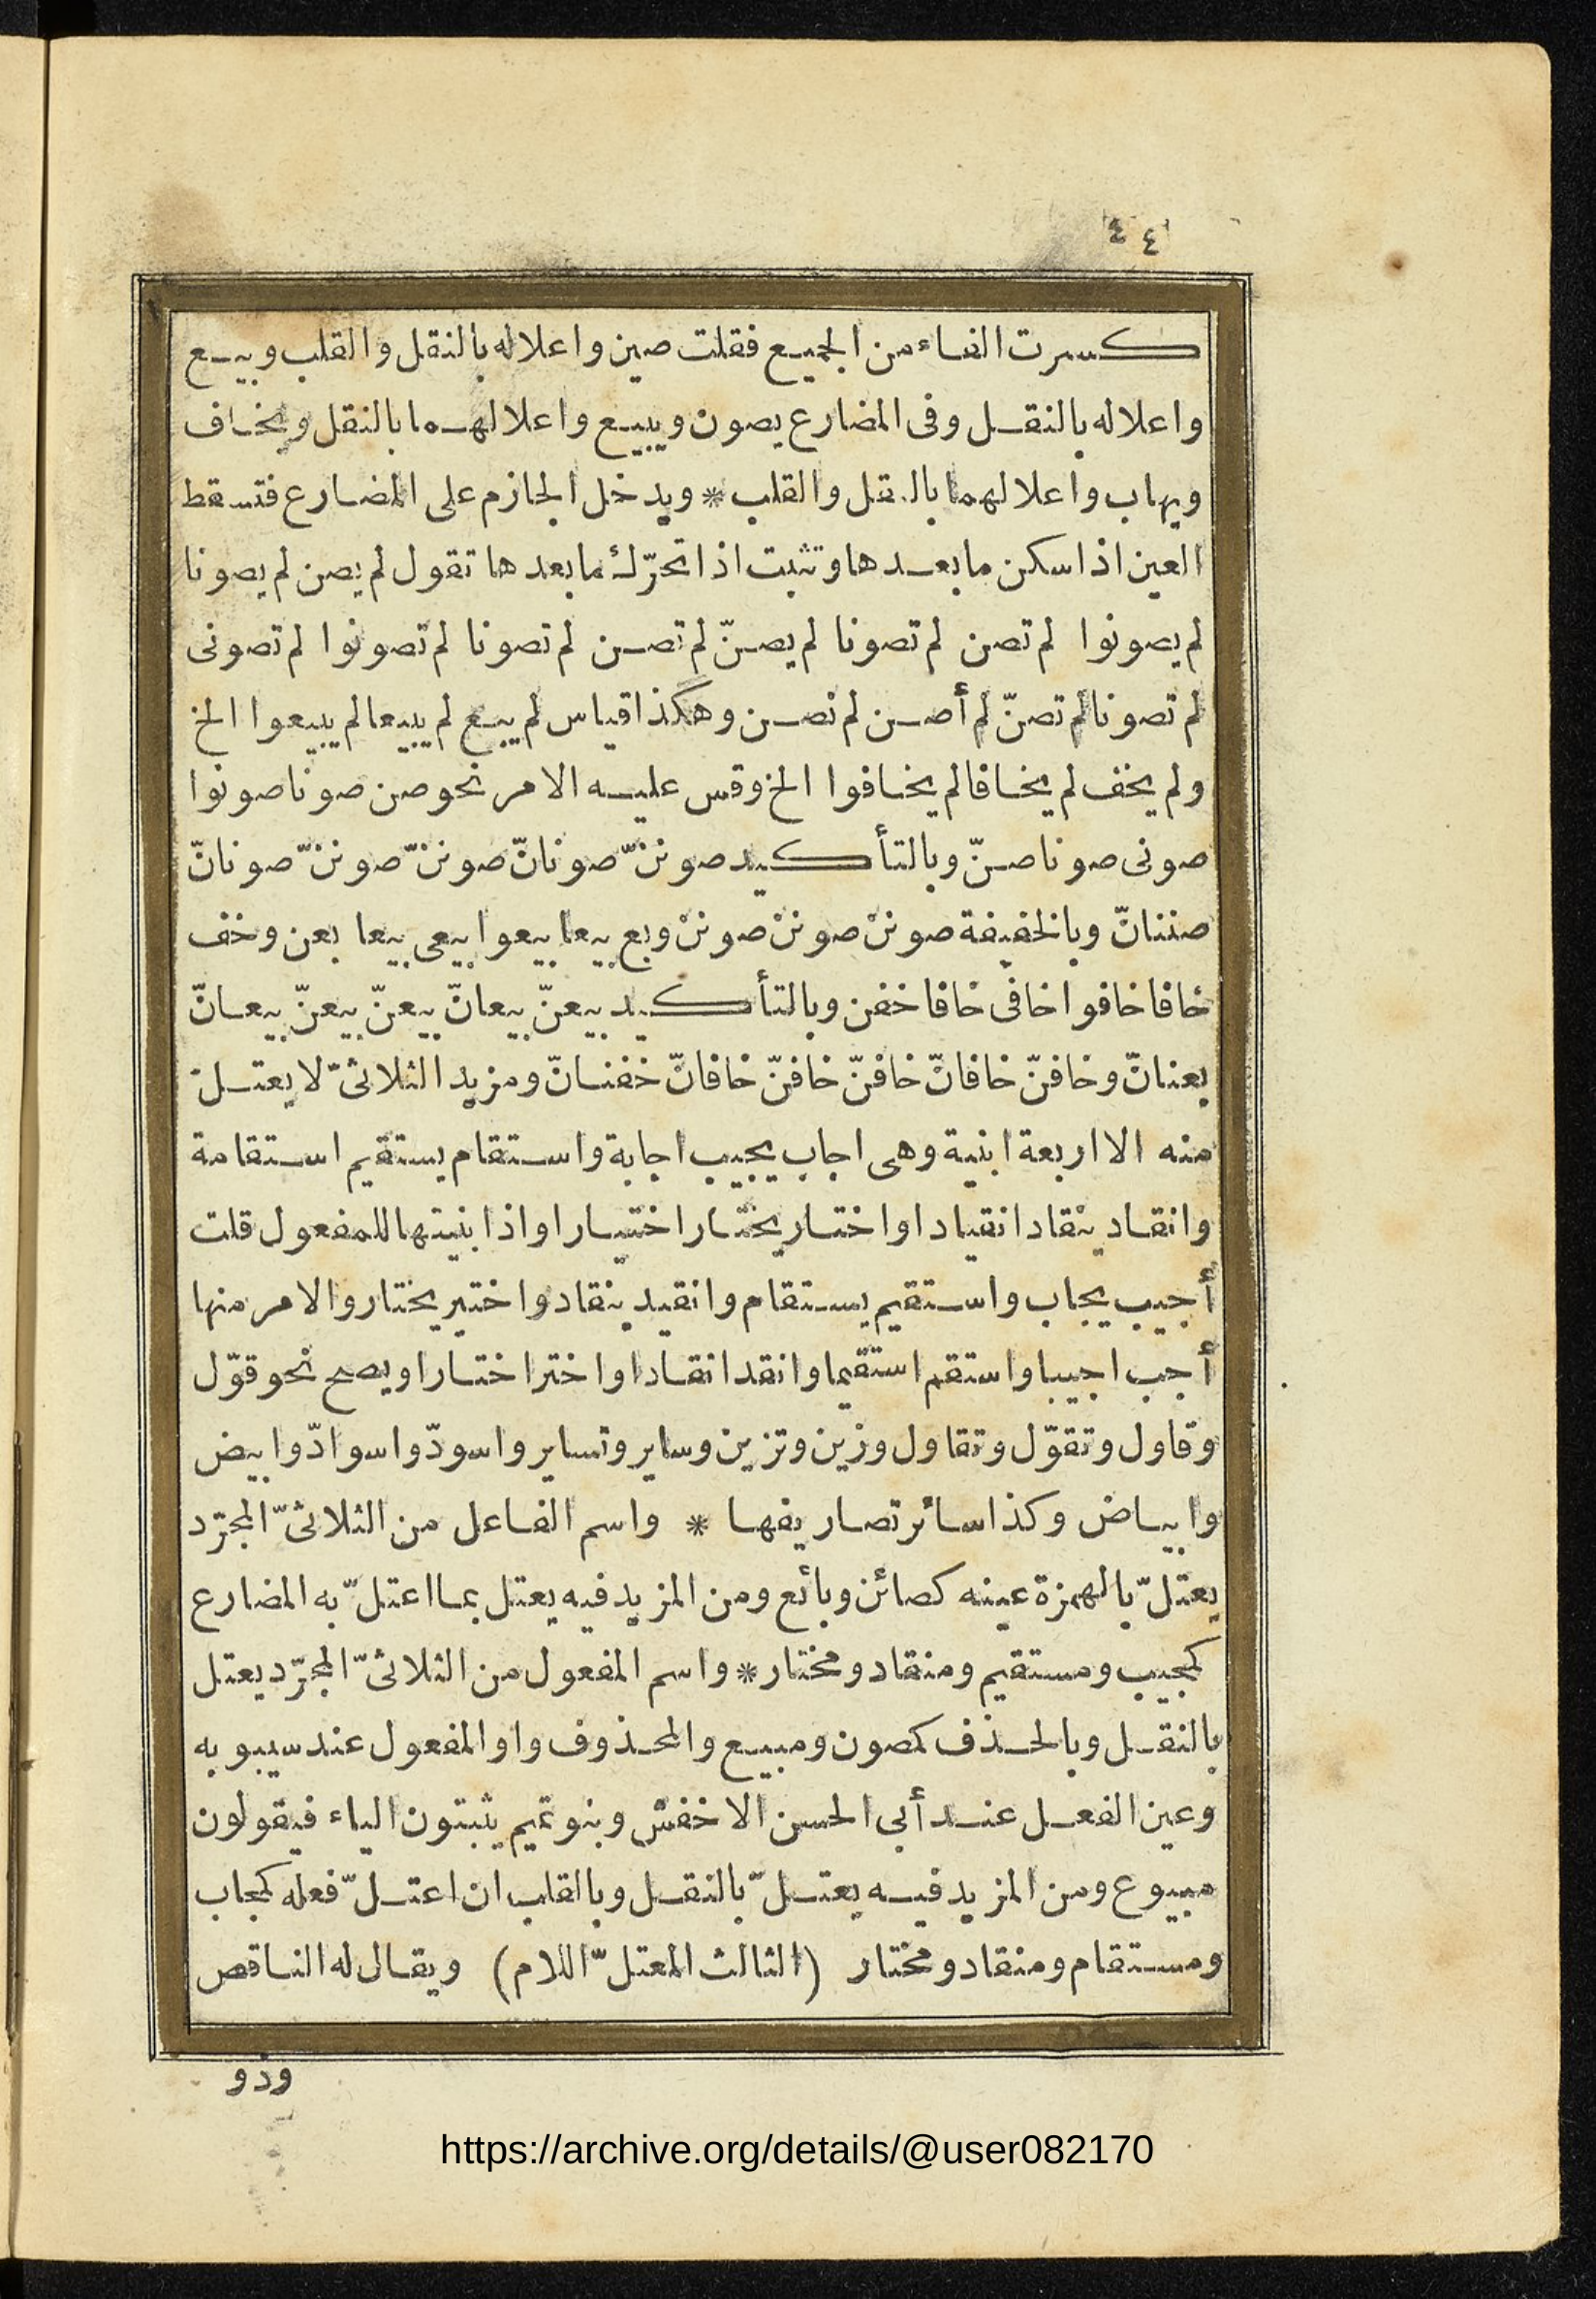 ٤٤
كسرت الفاء من الجميع فقلت صين واعلاله بالنقل والقلب وبيع
واعلاله بالنقل وفى المضارع يصون ويبيع واعلالهما بالنقل ويخاف
ويهاب واعلالهما بالنقل والقلب * ويدخل الجازم على المضارع فتسقط
العين اذا سكن ما بعدها وتثبت اذا تحرّك ما بعدها تقول لم يصن لم يصونا
لم يصونوا لم تصن لم تصونا لم يصنّ لم تصن لم تصونا لم تصونوا لم تصونى
لم تصونا لم تصنّ لم أصن لم نصن وهكذا قياس لم يبع لم يبيعا لم يبيعوا الخ
ولم يخف لم يخافا لم يخافوا الخ وقس عليه الامر نحو صن صونا صونوا
صونى صونا صنّ وبالتأكيد صوننّ صونانّ صوننّ صوننّ صونانّ
صننانّ وبالخفيفة صوننْ صوننْ صوننْ وبع بيعا بيعوا بيعى بيعا بعن وخف
خافا خافوا خافى خافا خفن وبالتأكيد بيعنّ بيعانّ بيعنّ بيعنّ بيعانّ
بعنانّ وخافنّ خافانّ خافنّ خافنّ خافانّ خفنانّ ومزيد الثلاثىّ لا يعتلّ
منه الا اربعة ابنية وهى اجاب يجيب اجابة واستقام يستقيم استقامة
وانقاد ينقاد انقيادا واختار يختار اختيارا واذا بنيتها للمفعول قلت
أجيب يجاب واستقيم يستقام وانقيد ينقاد واختير يختار والامر منها
أجب اجيبا واستقم استقيما وانقد انقادا واختر اختارا ويصح نحو قوّل
وقاول وتقوّل وتقاول وزين وتزين وساير وتساير واسودّ واسوادّ وابيض
وابياض وكذا سائر تصاريفها * واسم الفاعل من الثلاثىّ المجرّد
يعتلّ بالهمزة عينه كصائن وبائع ومن المزيد فيه يعتل بما اعتلّ به المضارع
كمجيب ومستقيم ومنقاد ومختار * واسم المفعول من الثلاثىّ المجرّد يعتل
بالنقل وبالحذف كمصون ومبيع والمحذوف واو المفعول عند سيبويه
وعين الفعل عند أبى الحسن الاخفش وبنو تميم يثبتون الياء فيقولون
مبيوع ومن المزيد فيه يعتلّ بالنقل وبالقلب ان اعتلّ فعله كمجاب
ومستقام ومنقاد ومختار (الثالث المعتلّ اللام) ويقال له الناقص
وذو
https://archive.org/details/@user082170